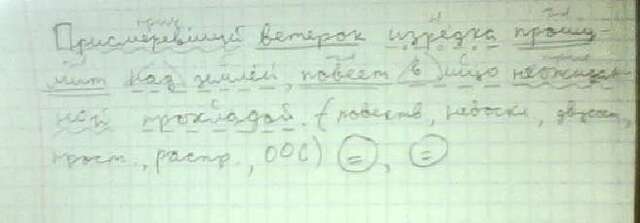 прич. н. гл.
Присмиревший ветерок изредка прошу-
мит над землёй, повеет в лицо неожидан-
ной прохладой. (повеств, невоскл, двусост,
прост., распр., ООС) =, =